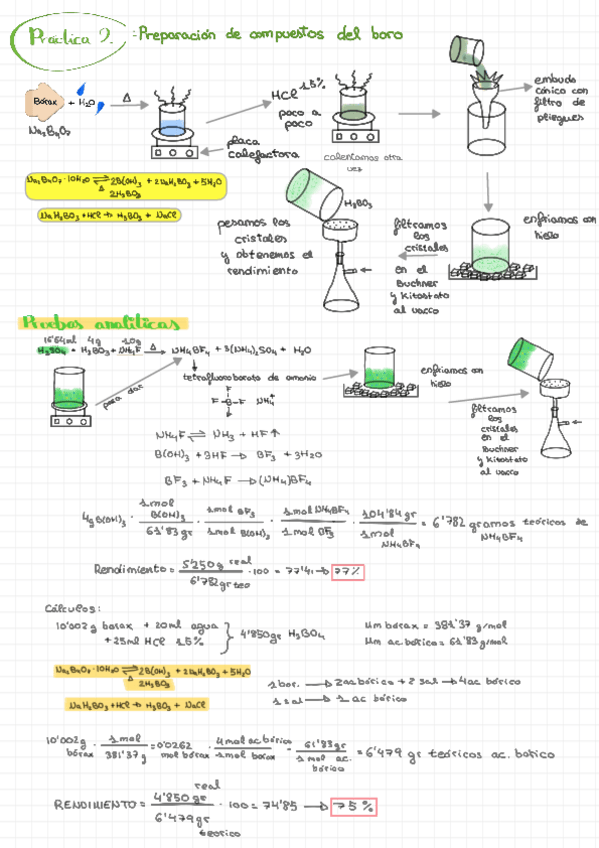 Práctica 2. : Preparación de compuestos del boro
Bórax + H₂O
Δ
Na₂B₄O₇
HCl 15%
poco a
poco
placa
calefactora
calentamos otra
vez
embudo
cónico con
filtro de
pliegues
Na₂B₄O₇·10H₂O ⇌ 2B(OH)₃ + 2NaH₂BO₃ + 5H₂O
Δ
2H₃BO₃
NaH₂BO₃ + HCl → H₃BO₃ + NaCl
enfriamos con
hielo
filtramos
los
cristales
en el
Buchner
y Kitasato
al vacío
H₃BO₃
pesamos los
cristales
y obtenemos el
rendimiento
Pruebas analíticas
16'64ml 4g 10g
H₂SO₄ + H₃BO₃ + NH₄F Δ→ NH₄BF₄ + 3(NH₄)₂SO₄ + H₂O
para dar
tetrafluoroborato de amonio
F
F-B-F NH₄⁺
F
enfriamos con
hielo
filtramos
los
cristales
en el
Buchner
y Kitasato
al vacío
NH₄F ⇌ NH₃ + HF↑
B(OH)₃ + 3HF → BF₃ + 3H₂O
BF₃ + NH₄F → (NH₄)BF₄
4g B(OH)₃ · 1mol B(OH)₃ / 61'83gr · 1mol BF₃ / 1mol B(OH)₃ · 1mol NH₄BF₄ / 1mol BF₃ · 104'84gr / 1mol NH₄BF₄ = 6'782 gramos teóricos de NH₄BF₄
Rendimiento = 5'250g real / 6'782gr teo · 100 = 77'41 → 77%
Cálculos:
10'002g borax + 20ml agua
+ 25ml HCl 15%
} 4'850gr H₃BO₄
Mm bórax = 381'37 g/mol
Mm ac.bórico = 61'83g/mol
Na₂B₄O₇·10H₂O ⇌ 2B(OH)₃ + 2NaH₂BO₃ + 5H₂O
Δ
2H₃BO₃
NaH₂BO₃ + HCl → H₃BO₃ + NaCl
1bor. → 2ac bórico + 2 sal → 4ac bórico
1 sal → 1 ac bórico
10'002g bórax · 1mol / 381'37g = 0'0262 mol bórax · 4mol ac bórico / 1mol borax · 61'83gr / 1mol ac. bórico = 6'479 gr teóricos ac. bórico
RENDIMIENTO = 4'850gr real / 6'479gr teórico · 100 = 74'85 → 75%